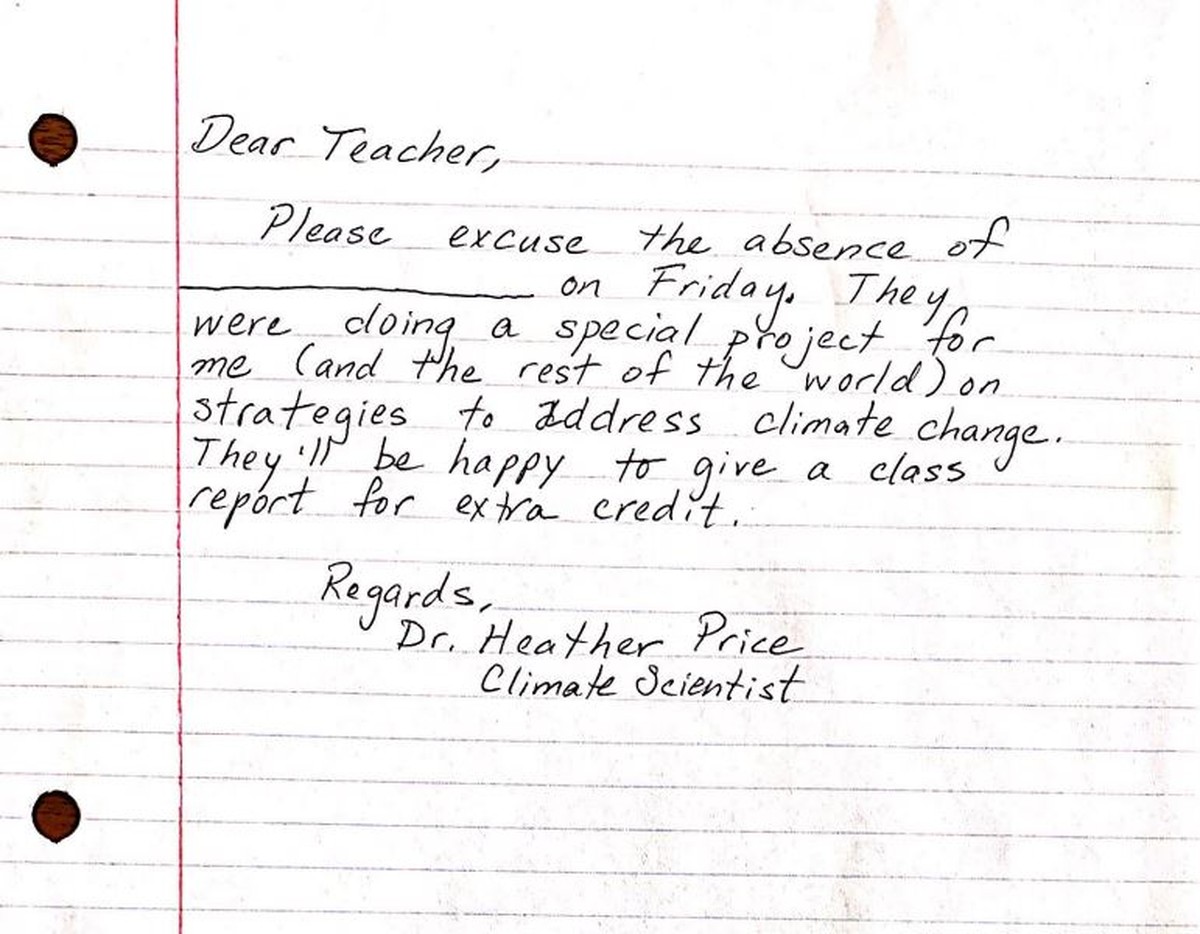 Dear Teacher,
Please excuse the absence of
______________ on Friday. They
were doing a special project for
me (and the rest of the world) on
strategies to address climate change.
They'll be happy to give a class
report for extra credit.
Regards,
Dr. Heather Price
Climate Scientist